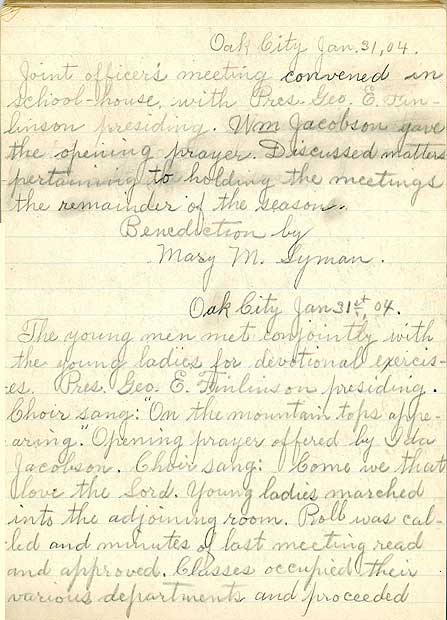 Oak City Jan. 31, 04.
Joint officer's meeting convened in
school-house, with Pres. Geo. E. Fin-
linson presiding. Wm Jacobson gave
the opening prayer. Discussed matters
pertaining to holding the meetings
the remainder of the season.
Benediction by
Mary M. Lyman.
Oak City Jan 31st, 04.
The young men met conjointly with
the young ladies for devotional exercis-
es. Pres. Geo. E. Finlinson presiding.
Choir sang: "On the mountain tops appe-
aring." Opening prayer offered by Ida
Jacobson. Choir sang: Come we that
love the Lord. Young ladies marched
into the adjoining room. Roll was cal-
led and minutes of last meeting read
and approved. Classes occupied their
various departments and proceeded